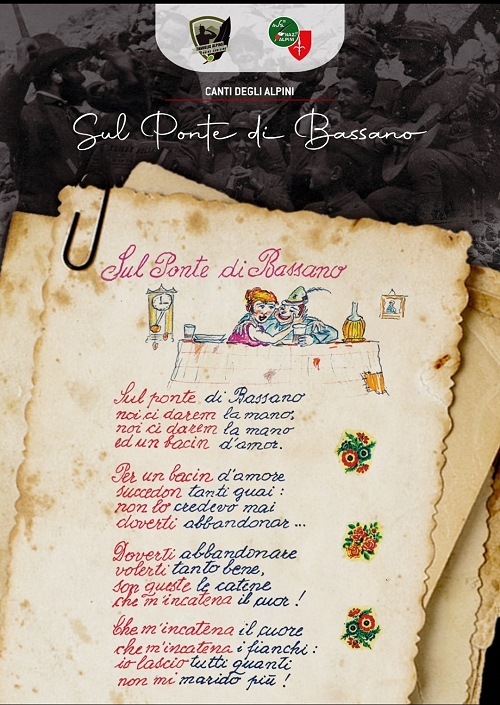 CANTI DEGLI ALPINI
Sul Ponte di Bassano
Sul Ponte di Bassano
Sul ponte di Bassano
noi ci darem la mano.
noi ci darem la mano
ed un bacin d'amor.
Per un bacin d'amore
succedon tanti guai:
non lo credevo mai
doverti abbandonar ...
Doverti abbandonare
volerti tanto bene,
son queste le catene
che m'incatena il cuor!
Che m'incatena il cuore
che m'incatena i fianchi:
io lascio tutti quanti
non mi marido più!